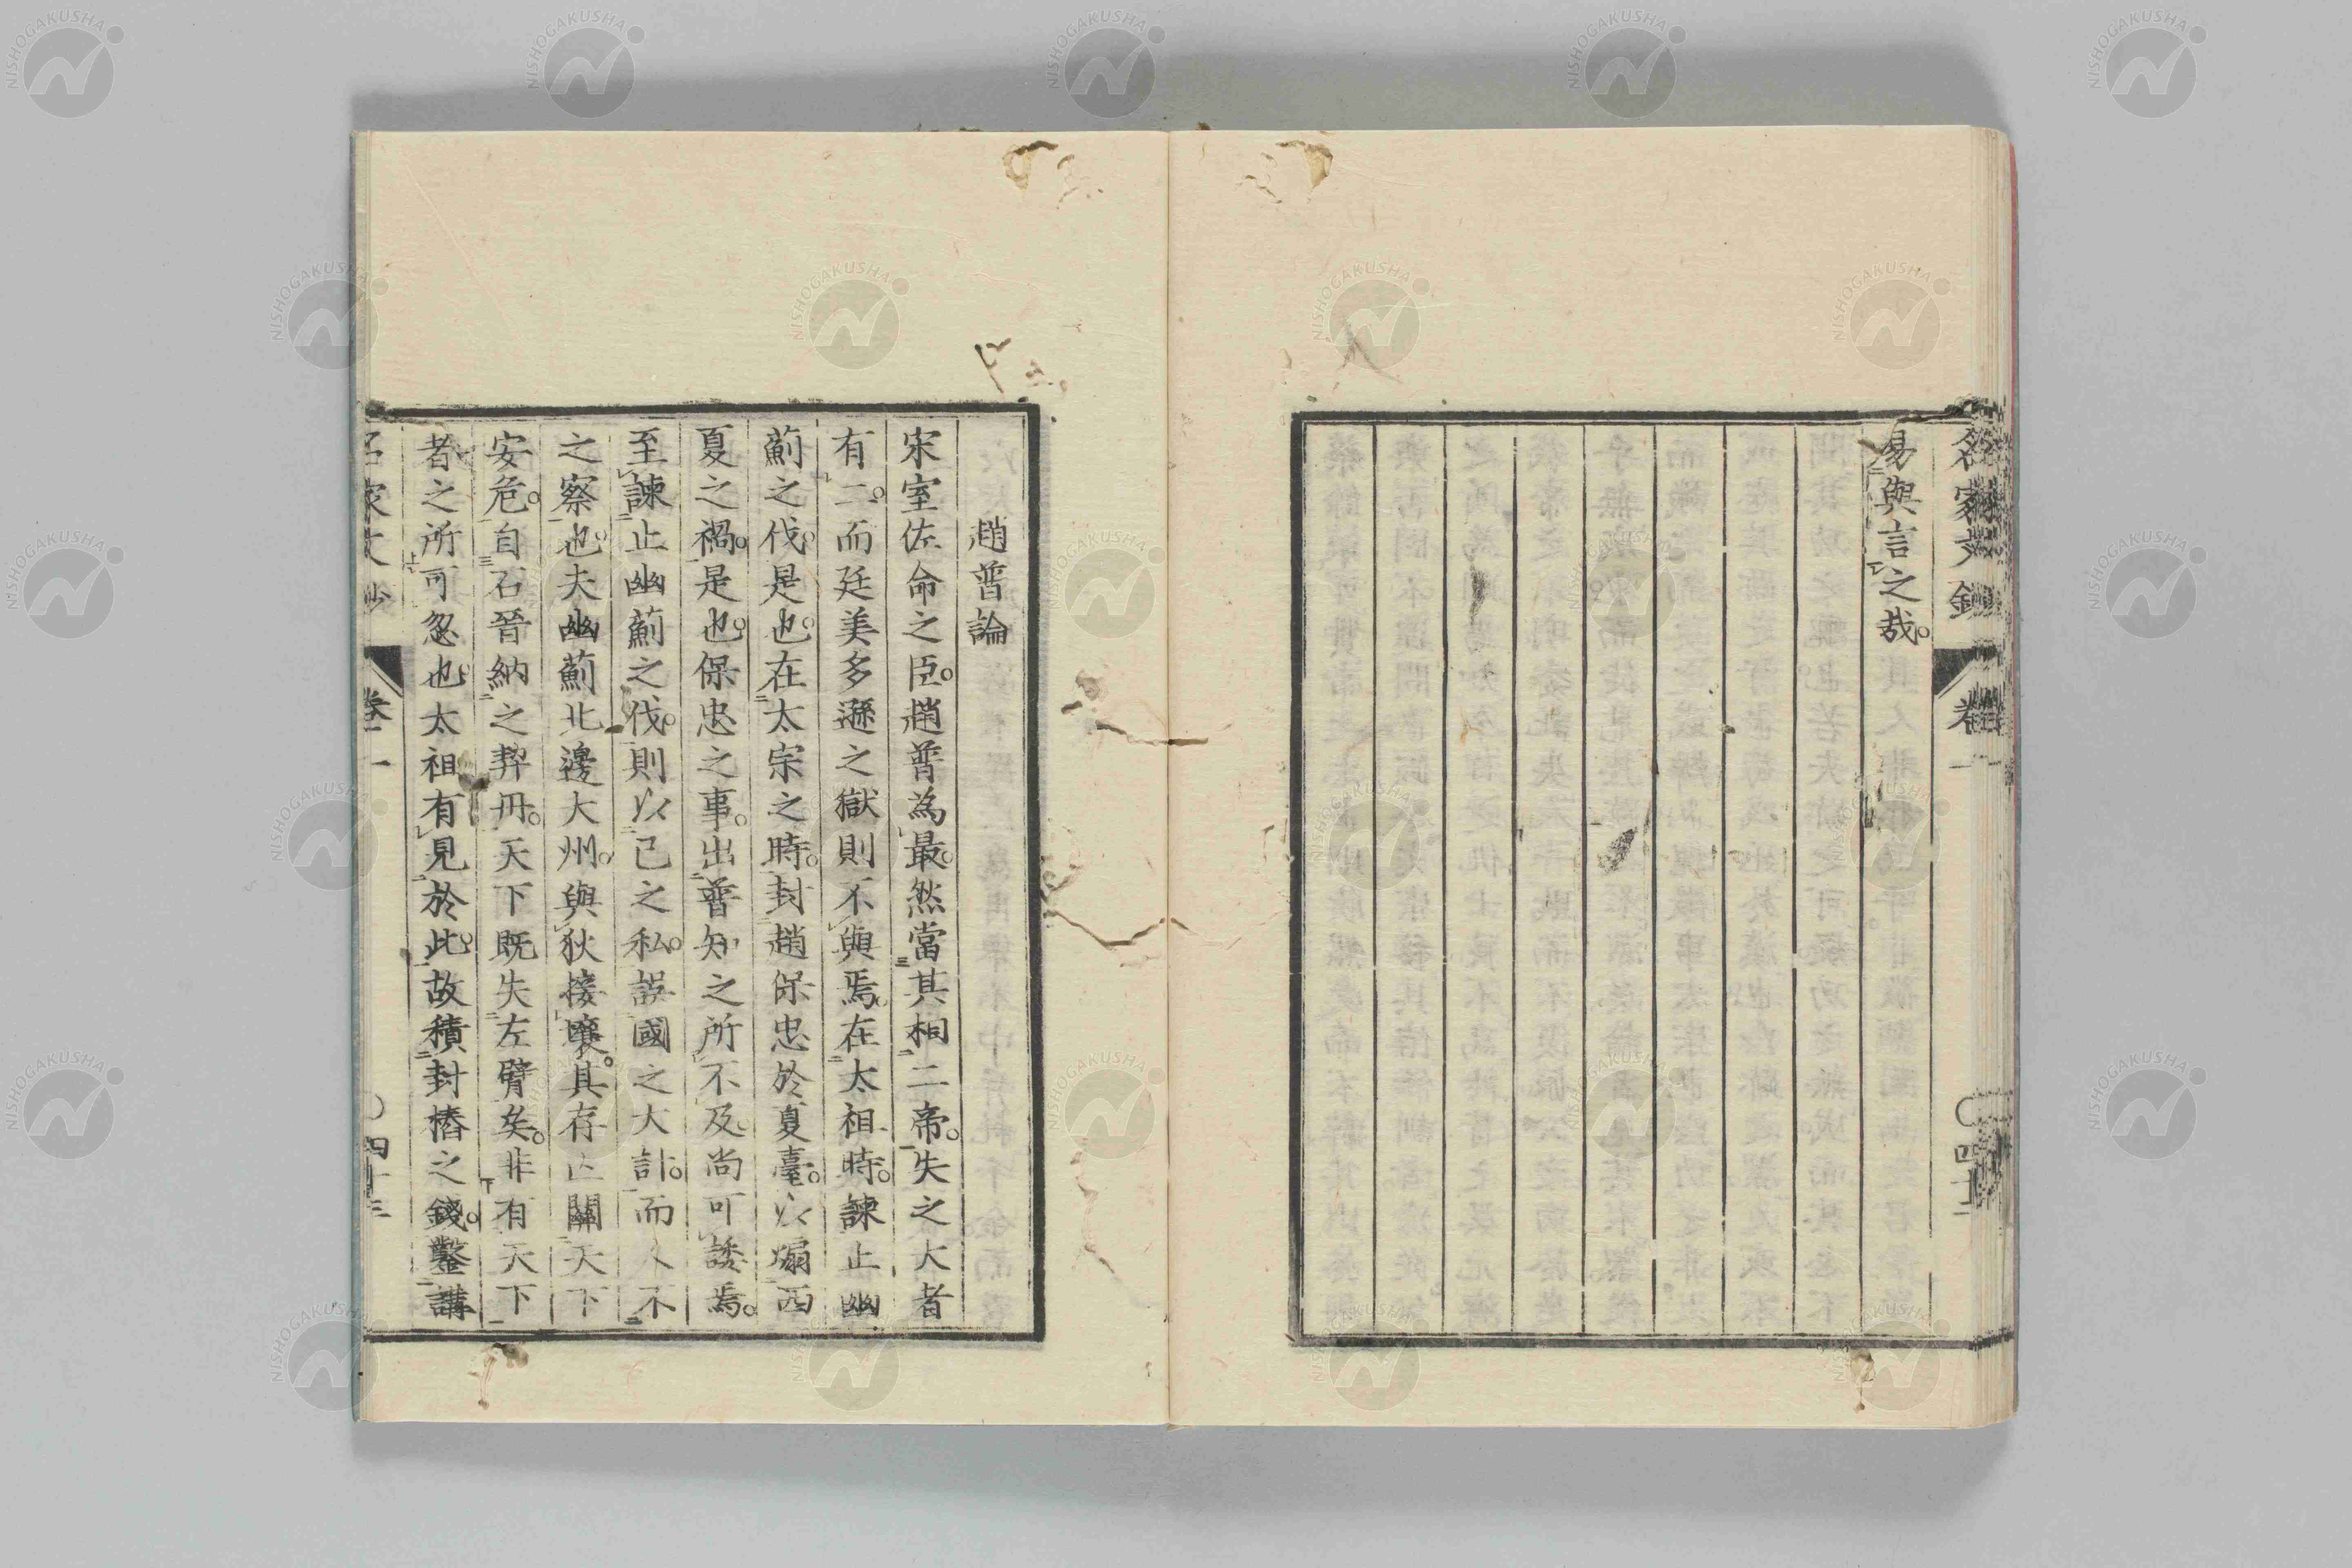 名家文鈔
卷一
〇四十二
易與言之哉。
趙普論
宋室佐命之臣。趙普為最。然當其相二帝。失之大者
有二。而廷美多遜之獄則不與焉。在太祖時。諫止幽
薊之伐。是也。在太宗之時。封趙保忠於夏臺。以煽西
夏之禍。是也。保忠之事。出普知之所不及。尚可諉焉。
至諫止幽薊之伐。則以己之私。誤國之大計。而人不
之察也。夫幽薊北邊大州。與狄接壤。其存亡關天下
安危。自石晉納之契丹。天下既失左臂矣。非有天下
者之所可忽也。太祖有見於此。故積封樁之錢。鑿講
名家文鈔
卷一
〇四十三
NISHOGAKUSHA